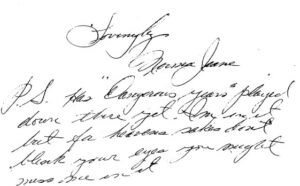 Lovingly
Norma Jeane
P.S. Has "Dangerous years" played
down there yet Im in it
but for heavens sakes dont
blink your eyes you might
miss me in it